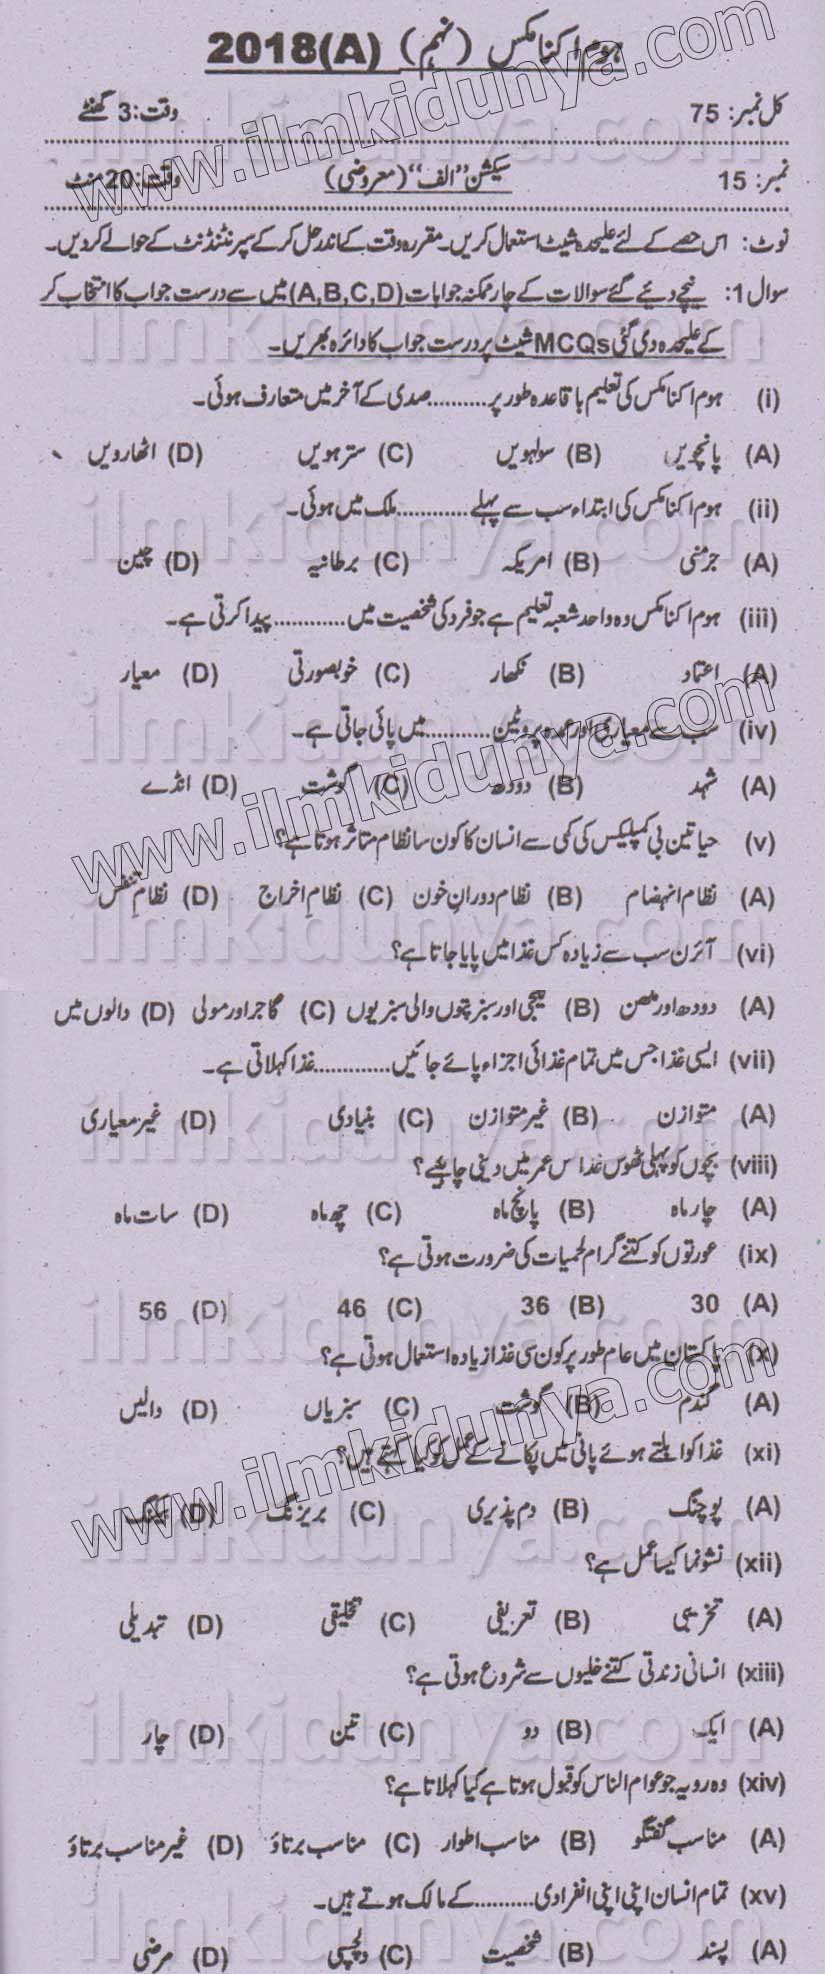 ہوم اکنامکس (نہم) 2018(A)
کل نمبر: 75 وقت: 3 گھنٹے
نمبر: 15 سیکشن ”الف“ (معروضی) وقت: 20 منٹ
نوٹ: اس حصے کے لئے علیحدہ شیٹ استعمال کریں۔ مقررہ وقت کے اندر حل کر کے سپرنٹنڈنٹ کے حوالے کر دیں۔
سوال 1: نیچے دیئے گئے سوالات کے چار ممکنہ جوابات (A,B,C,D) میں سے درست جواب کا انتخاب کر
کے علیحدہ دی گئی MCQs شیٹ پر درست جواب کا دائرہ بھریں۔
(i) ہوم اکنامکس کی تعلیم باقاعدہ طور پر ..........صدی کے آخر میں متعارف ہوئی۔
(A) پانچویں (B) سولہویں (C) سترہویں (D) اٹھارویں
(ii) ہوم اکنامکس کی ابتداء سب سے پہلے ............ملک میں ہوئی۔
(A) جرمنی (B) امریکہ (C) برطانیہ (D) چین
(iii) ہوم اکنامکس وہ واحد شعبہ تعلیم ہے جو فرد کی شخصیت میں ............پیدا کرتی ہے۔
(A) اعتماد (B) نکھار (C) خوبصورتی (D) معیار
(iv) سب سے معیاری اور عمدہ پروٹین ...........میں پائی جاتی ہے۔
(A) شہد (B) دودھ (C) گوشت (D) انڈے
(v) حیاتین بی کمپلیکس کی کمی سے انسان کا کون سا نظام متاثر ہوتا ہے؟
(A) نظام انہضام (B) نظام دورانِ خون (C) نظامِ اخراج (D) نظامِ تنفس
(vi) آئرن سب سے زیادہ کس غذا میں پایا جاتا ہے؟
(A) دودھ اور مکھن (B) کلیجی اور سبز پتوں والی سبزیوں (C) گاجر اور مولی (D) دالوں میں
(vii) ایسی غذا جس میں تمام غذائی اجزاء پائے جائیں.............غذا کہلاتی ہے۔
(A) متوازن (B) غیر متوازن (C) بنیادی (D) غیر معیاری
(viii) بچوں کو پہلی ٹھوس غذا کس عمر میں دینی چاہیئے؟
(A) چار ماہ (B) پانچ ماہ (C) چھ ماہ (D) سات ماہ
(ix) عورتوں کو کتنے گرام لحمیات کی ضرورت ہوتی ہے؟
(A) 30 (B) 36 (C) 46 (D) 56
(x) پاکستان میں عام طور پر کون سی غذا زیادہ استعمال ہوتی ہے؟
(A) گندم (B) گوشت (C) سبزیاں (D) دالیں
(xi) غذا کو ابلتے ہوئے پانی میں پکانے کے عمل کو کیا کہتے ہیں؟
(A) پوچنگ (B) دم پذیری (C) بریزنگ (D) بیکنگ
(xii) نشوونما کیسا عمل ہے؟
(A) تخریبی (B) تعریفی (C) تخلیقی (D) تبدیلی
(xiii) انسانی زندگی کتنے خلیوں سے شروع ہوتی ہے؟
(A) ایک (B) دو (C) تین (D) چار
(xiv) وہ رویہ جو عوام الناس کو قبول ہوتا ہے کیا کہلاتا ہے؟
(A) مناسب گفتگو (B) مناسب اطوار (C) مناسب برتاؤ (D) غیر مناسب برتاؤ
(xv) تمام انسان اپنی اپنی انفرادی ..........کے مالک ہوتے ہیں۔
(A) پسند (B) شخصیت (C) دلچسپی (D) مرضی
www.ilmkidunya.com
www.ilmkidunya.com
www.ilmkidunya.com